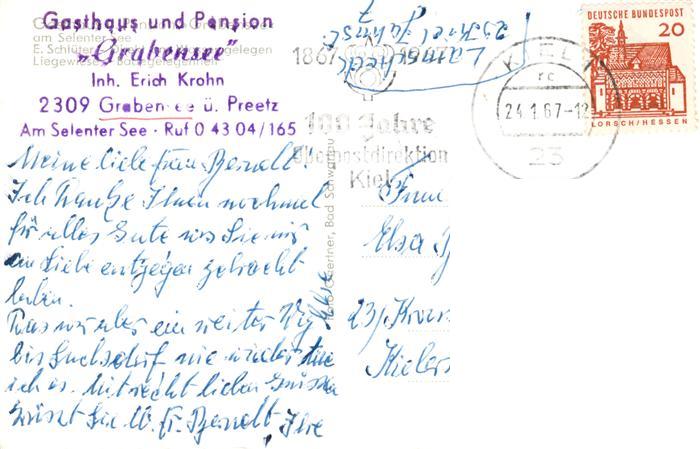 Gasthaus und Pension
„Grabensee"
Inh. Erich Krohn
2309 Grabensee ü. Preetz
Am Selenter See · Ruf 0 43 04/165
am Selenter See
E. Schlüter
gelegen
Liegewiese
Meine liebe Frau Berndt!
Ich danke Ihnen nochmal
für alles Gute was Sie mir
an Liebe entgegen gebracht
haben.
Das war aber ein weiter Weg
bis nie wieder tue
ich es. Mit recht lieben Grüssen
grüsst Sie Fr. Berndt Ihre
1867 1967
100 Jahre
Oberpostdirektion
Kiel
KIEL
rc
24.1.67-12
23
DEUTSCHE BUNDESPOST
20
LORSCH/HESSEN
Bad Schwartau
Frau
Elsa
23
Kieler